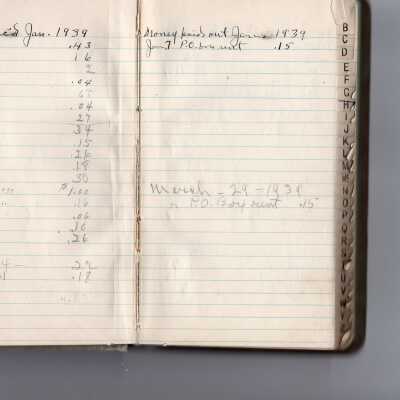 Jan. 1939
.43
16
2
.04
.04
27
34
.15
.26
.18
30
$1.00
.16
.06
.16
.26
.29
.18
Money paid out Jan. 1939
Jan 7 P.O. box rent .15
March - 29 - 1939
" P.O. Box rent .15
B
C
D
E
F
G
H
I
J
K
L
M
N
O
P
Q
R